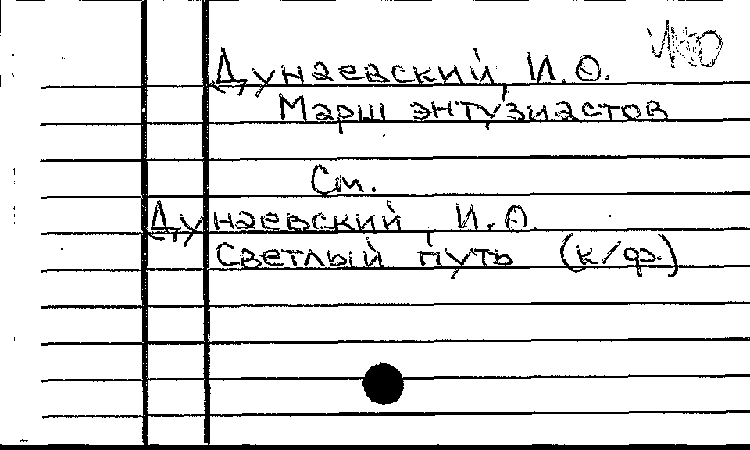 Дунаевский, И.О.
Марш энтузиастов
См.
Дунаевский, И.О.
Светлый путь (к/ф.)